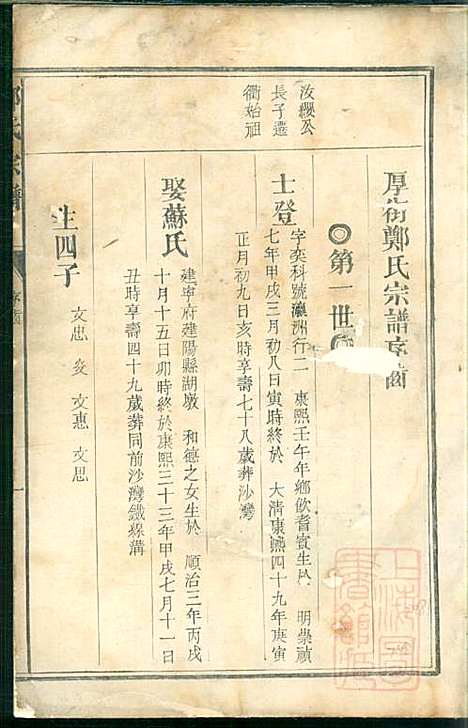 厚街鄭氏宗譜序齒
◎第一世◎
汝纓公
長子遷
衢始祖
士登
字奕科號瀛洲行二 康熙壬午年鄉飲耆賓生於 明崇禎
七年甲戌三月初八日寅時終於 大清康熙四十九年庚寅
正月初九日亥時享壽七十八歲葬沙灣
娶蘇氏
建寧府建陽縣湖墩 和德之女生於 順治三年丙戌
十月十五日卯時終於康熙三十三年甲戌七月十一日
丑時享壽四十九歲葬同前沙灣鐵
生四子
文忠 文 文惠 文思
氏宗譜
序齒
一
上海圖書館藏